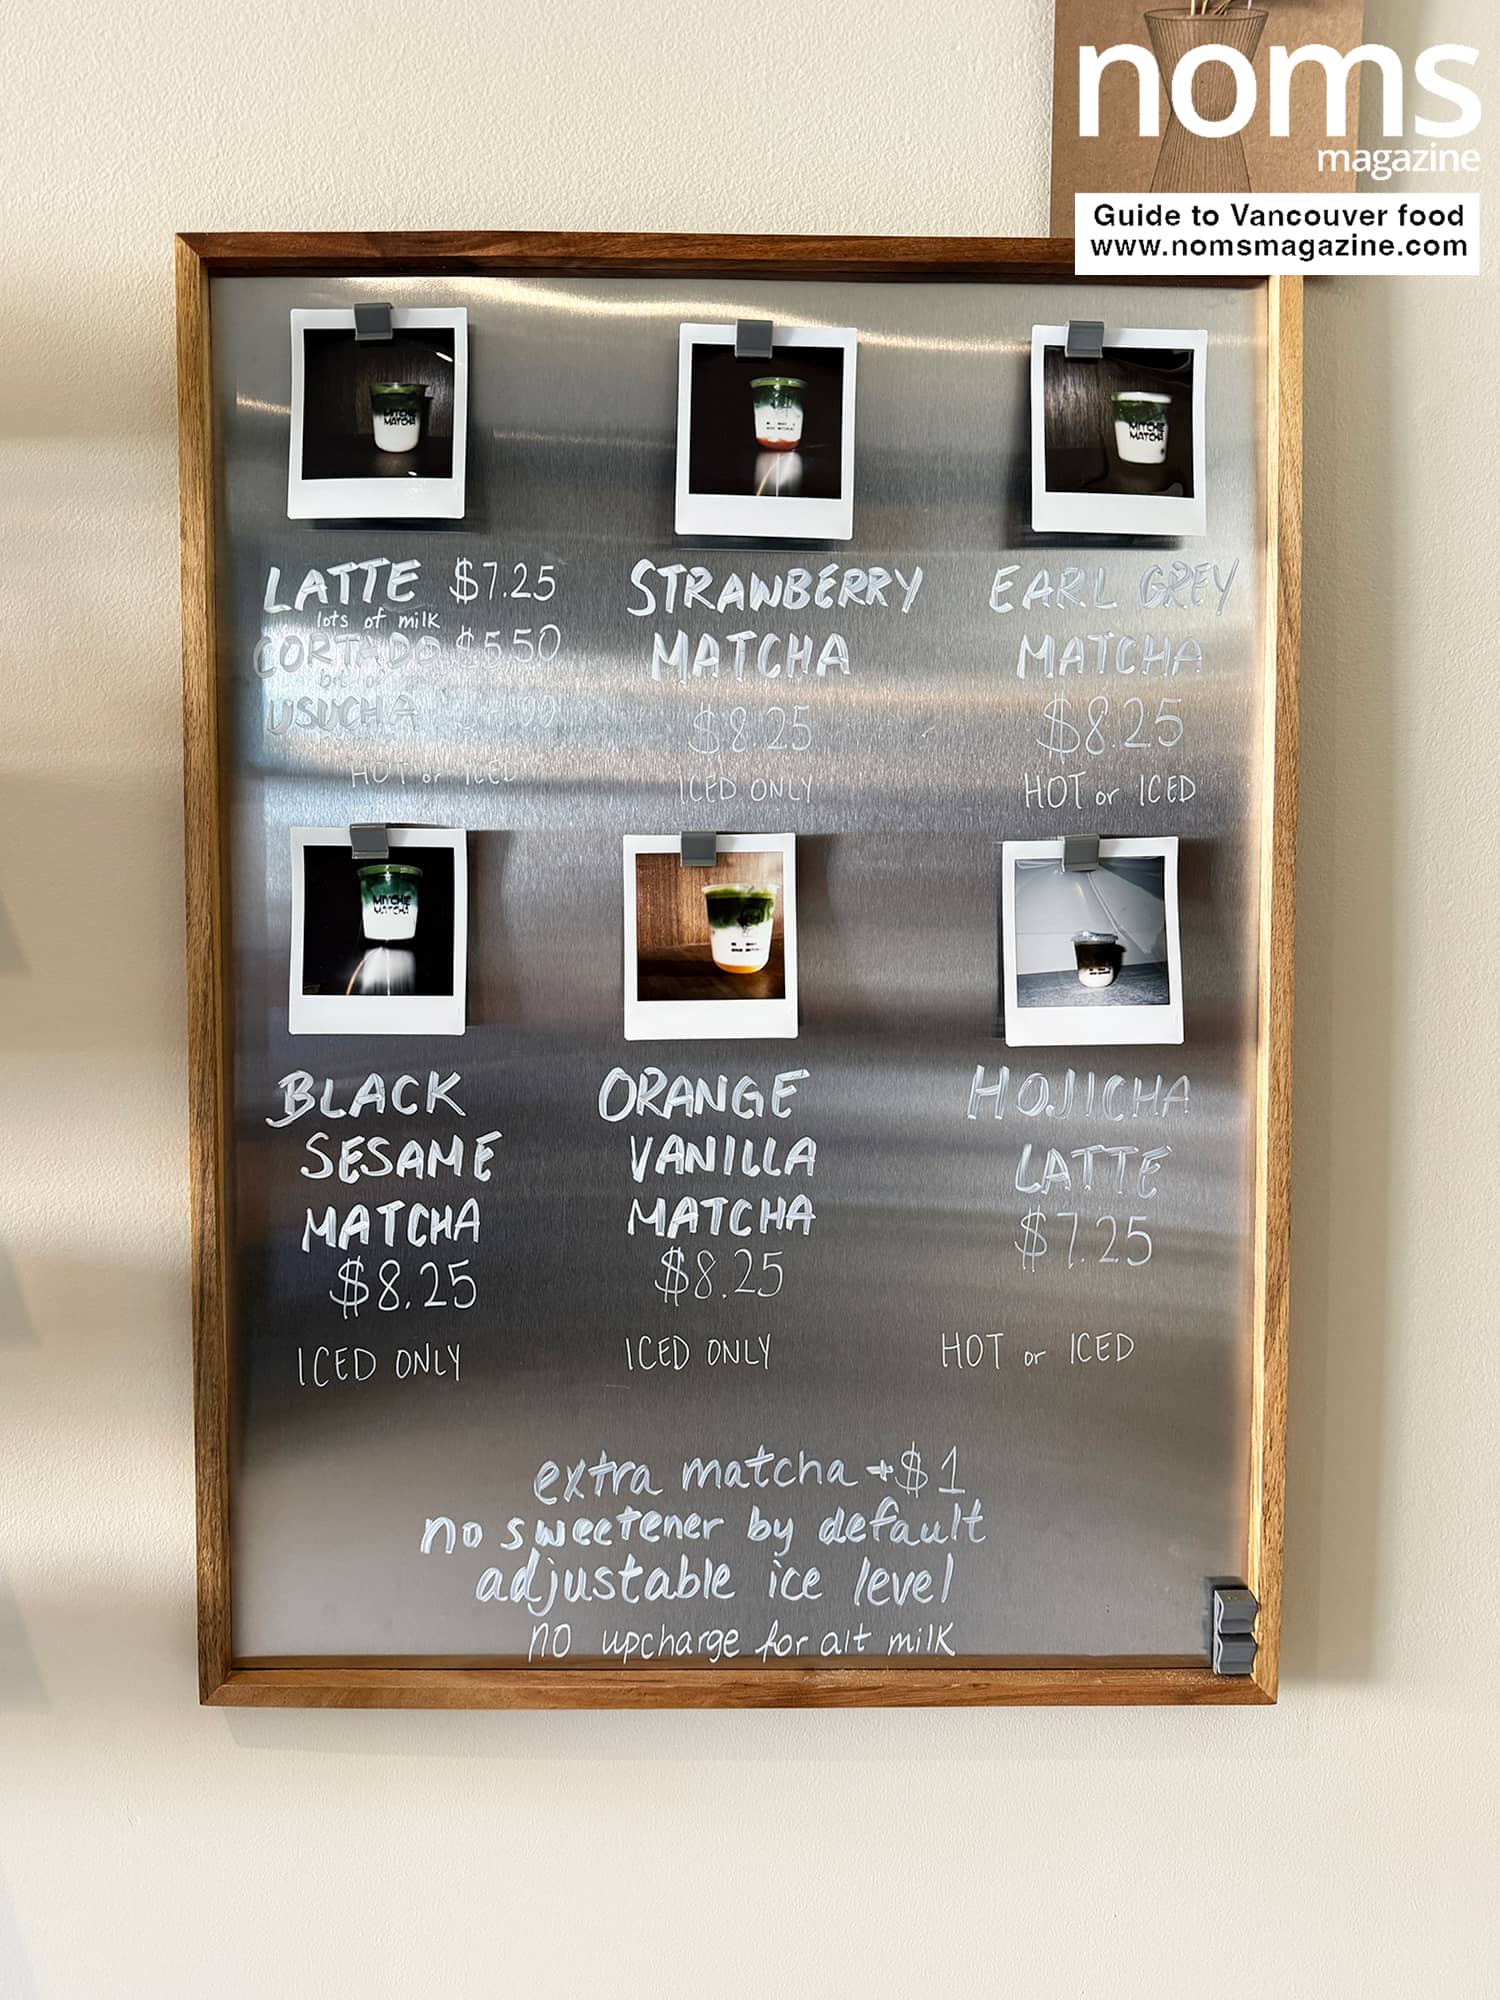 noms
magazine
Guide to Vancouver food
www.nomsmagazine.com
MITCHIE
MATCHA
MITCHIE
MATCHA
LATTE $7.25
lots of milk
CORTADO $5.50
bit of
USUCHA
HOT or ICED
STRAWBERRY
MATCHA
$8.25
ICED ONLY
EARL GREY
MATCHA
$8.25
HOT or ICED
MITCHIE
MATCHA
BLACK
SESAME
MATCHA
$8.25
ICED ONLY
ORANGE
VANILLA
MATCHA
$8.25
ICED ONLY
HOJICHA
LATTE
$7.25
HOT or ICED
extra matcha +$1
no sweetener by default
adjustable ice level
no upcharge for alt milk